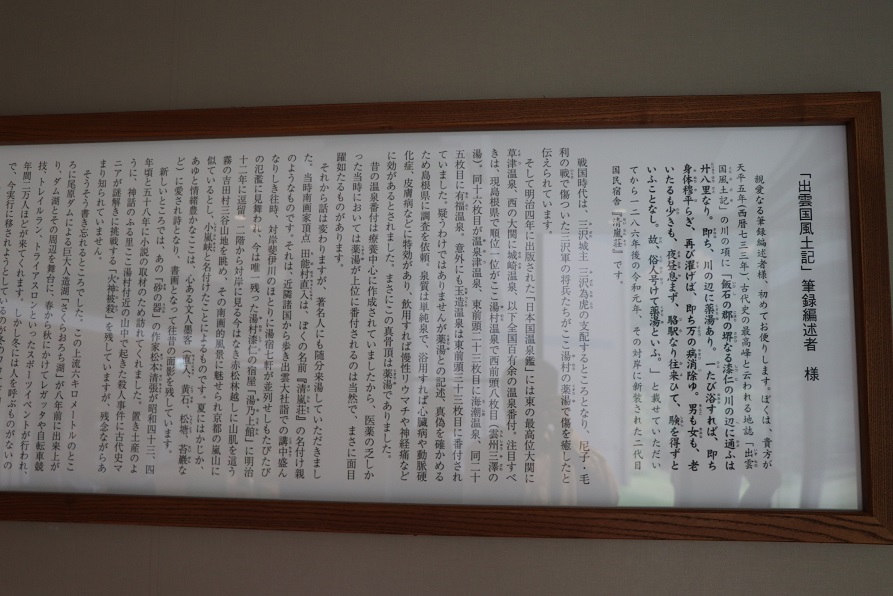 「出雲国風土記」筆録編述者 様
親愛なる筆録編述者様、初めてお便りします。ぼくは、貴方が
天平五年（西暦七三三年）、古代史の最高峰と云われる地誌「出雲
国風土記」の川の項に「飯石の郡の堺なる漆仁の川の辺に通ふは
廿八里なり。即ち、川の辺に薬湯あり。一たび浴すれば、即ち
身体穆平らぎ、再び濯げば、即ち万の病消除ゆ。男も女も、老
いたるも少きも、夜昼息まず、駱駅なり往来ひて、験を得ずと
いふことなし。故、俗人号けて薬湯といふ。」と載せていただい
てから一二八六年後の令和元年、その対岸に新装された二代目
国民宿舎『清嵐荘』です。
戦国時代は、三沢城主 三沢為虎の支配するところとなり、尼子・毛
利の戦で傷ついた三沢軍の将兵たちがここ湯村の薬湯で傷を癒したと
伝えられています。
そして明治四年に出版された「日本国温泉鑑」には東の最高位大関に
草津温泉、西の大関に城崎温泉、以下全国百有余の温泉番付。注目すべ
きは、現島根県で順位一位がここ湯村温泉で西前頭八枚目（雲州三澤の
湯）、同十六枚目が温泉津温泉、東前頭二十三枚目に海潮温泉、同二十
五枚目に有福温泉、意外にも玉造温泉は東前頭三十三枚目に番付され
ていました。疑うわけではありませんが薬湯との記述、真偽を確かめる
ため島根県に調査を依頼。泉質は単純泉で、浴用すれば心臓病や動脈硬
化症、皮膚病などに特効があり、飲用すれば慢性リウマチや神経痛など
に効があるとされました。まさにこの真骨頂は薬湯でありました。
昔の温泉番付は療養中心に作成されていましたから、医薬の乏しか
った当時においては薬湯が上位に番付されるのは当然で、まさに面目
躍如たるものがあります。
それから話は変わりますが、著名人にも随分来湯していただきまし
た。当時南画家頂点 田能村直入は、ぼくの名前『清嵐荘』の名付け親
のようなものです。それは、近隣諸国から歩き出雲大社詣での講中盛ん
なりしき往時、対岸斐伊川のほとりに湯宿七軒が並列せしもたびたび
の氾濫に見舞われ、今は唯一残った湯村漆仁の宿屋（湯乃上館）に明治
十二年に逗留。二階から対岸に見る今はなき赤松林越しに山肌を這う
霧の吉田村三谷山地を眺め、その南画的風景に魅せられ京都の嵐山に
似ているとし、小嵐峡と名付けたことによるものです。夏にはかじか、
あゆと情緒豊かなここは、心ある文人墨客（直入、黄石、松塘、苔巌な
ど）に愛され詩となり、書画となって往昔の面影を残しています。
新しいところでは、あの「砂の器」の作家松本清張が昭和四十三、四
年頃と五十八年に小説の取材のため訪れてくれました。置き土産のよ
うに、神話のふる里ここ湯村付近の山中で起きた殺人事件に古代史マ
ニアが謎解きに挑戦する「火神被殺」を残していますが、残念ながらあ
まり知られていません。
そうそう書き忘れるところでした。この上流六キロメートルのとこ
ろに尾原ダムによる巨大人造湖『さくらおろち湖』が八年前に出来上が
り、ダム湖とその周辺を舞台に、春から秋にかけてレガッタや自転車競
技、トレイルラン、トライアスロンといったスポーツイベントが行われ、
年間二万人ほどが来てくれます。しかし冬には人を呼ぶものがないの
で、今実行に移されようとしている